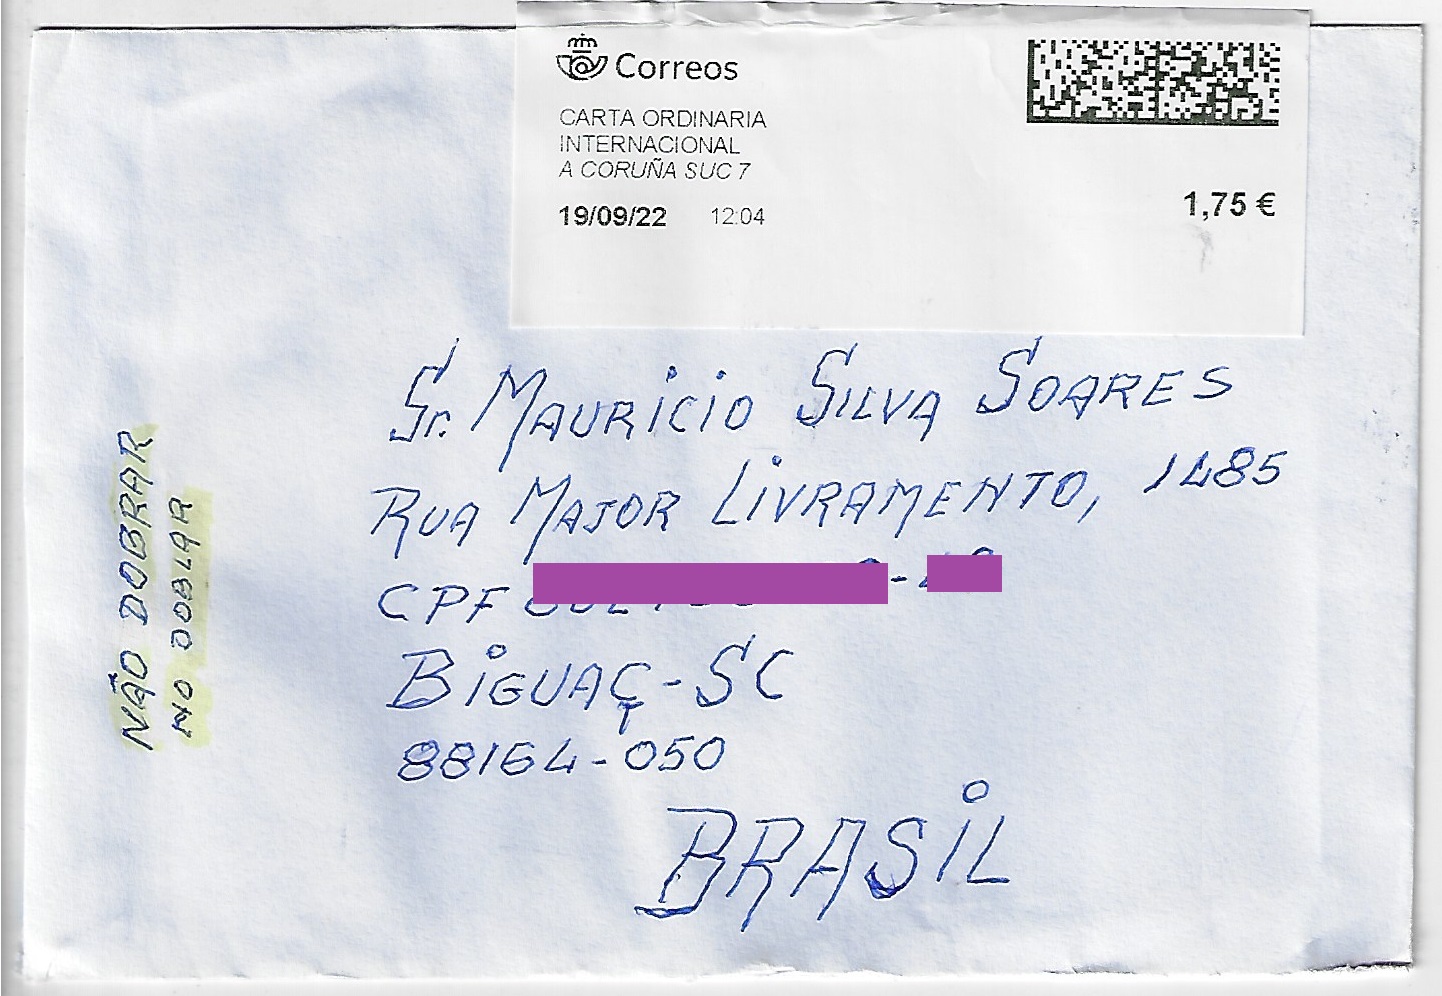 Correos
CARTA ORDINARIA
INTERNACIONAL
A CORUÑA SUC 7
19/09/22 12:04
1,75 €
Sr. MAURICIO SILVA SOARES
RUA MAJOR LIVRAMENTO, 1485
CPF
BIGUAÇ-SC
88164-050
BRASIL
NÃO DOBRAR
NO DOBLAR